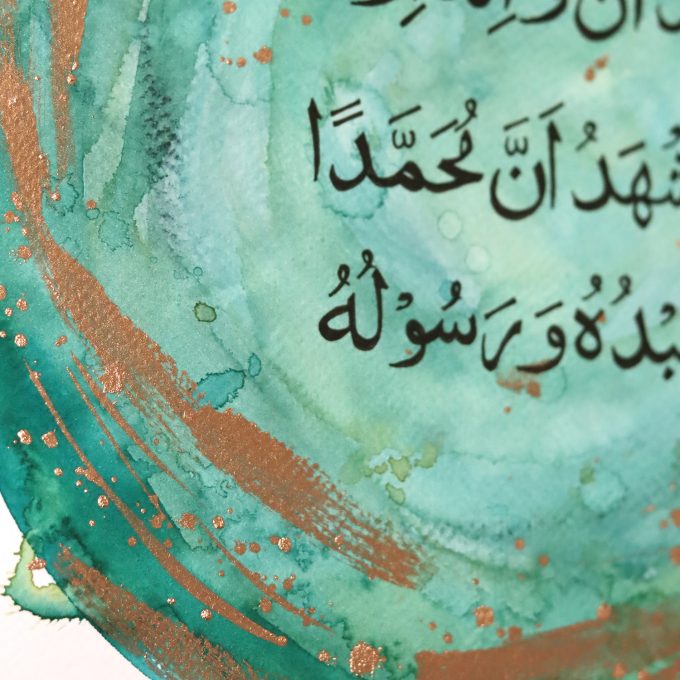 شْهَدُ اَنَّ مُحَمَّدًا
بْدُهُ وَرَسُوْلُهُ